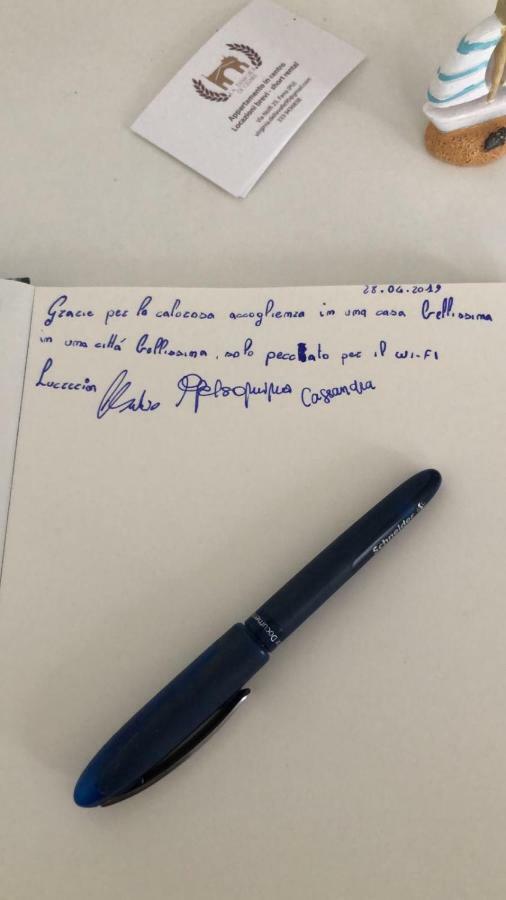 Appartamento in centro
Locazioni brevi - short rental
28.04.2019
Grazie per la calorosa accoglienza in una casa bellissima
in una città bellissima, solo peccato per il WI-FI
Cassandra
Schneider
Document